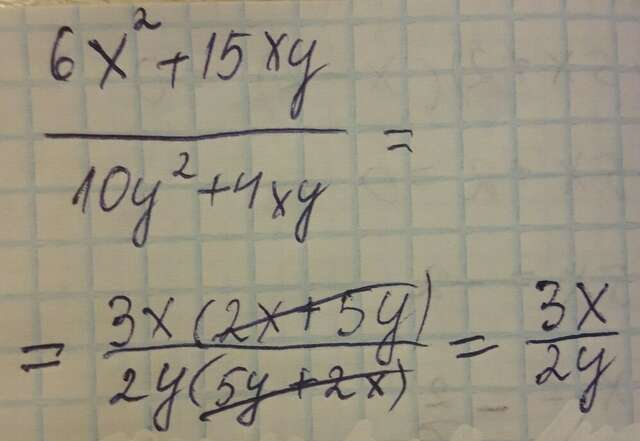 6x² + 15xy
10y² + 4xy =
= 3x(2x + 5y) = 3x
2y(5y + 2x) 2y